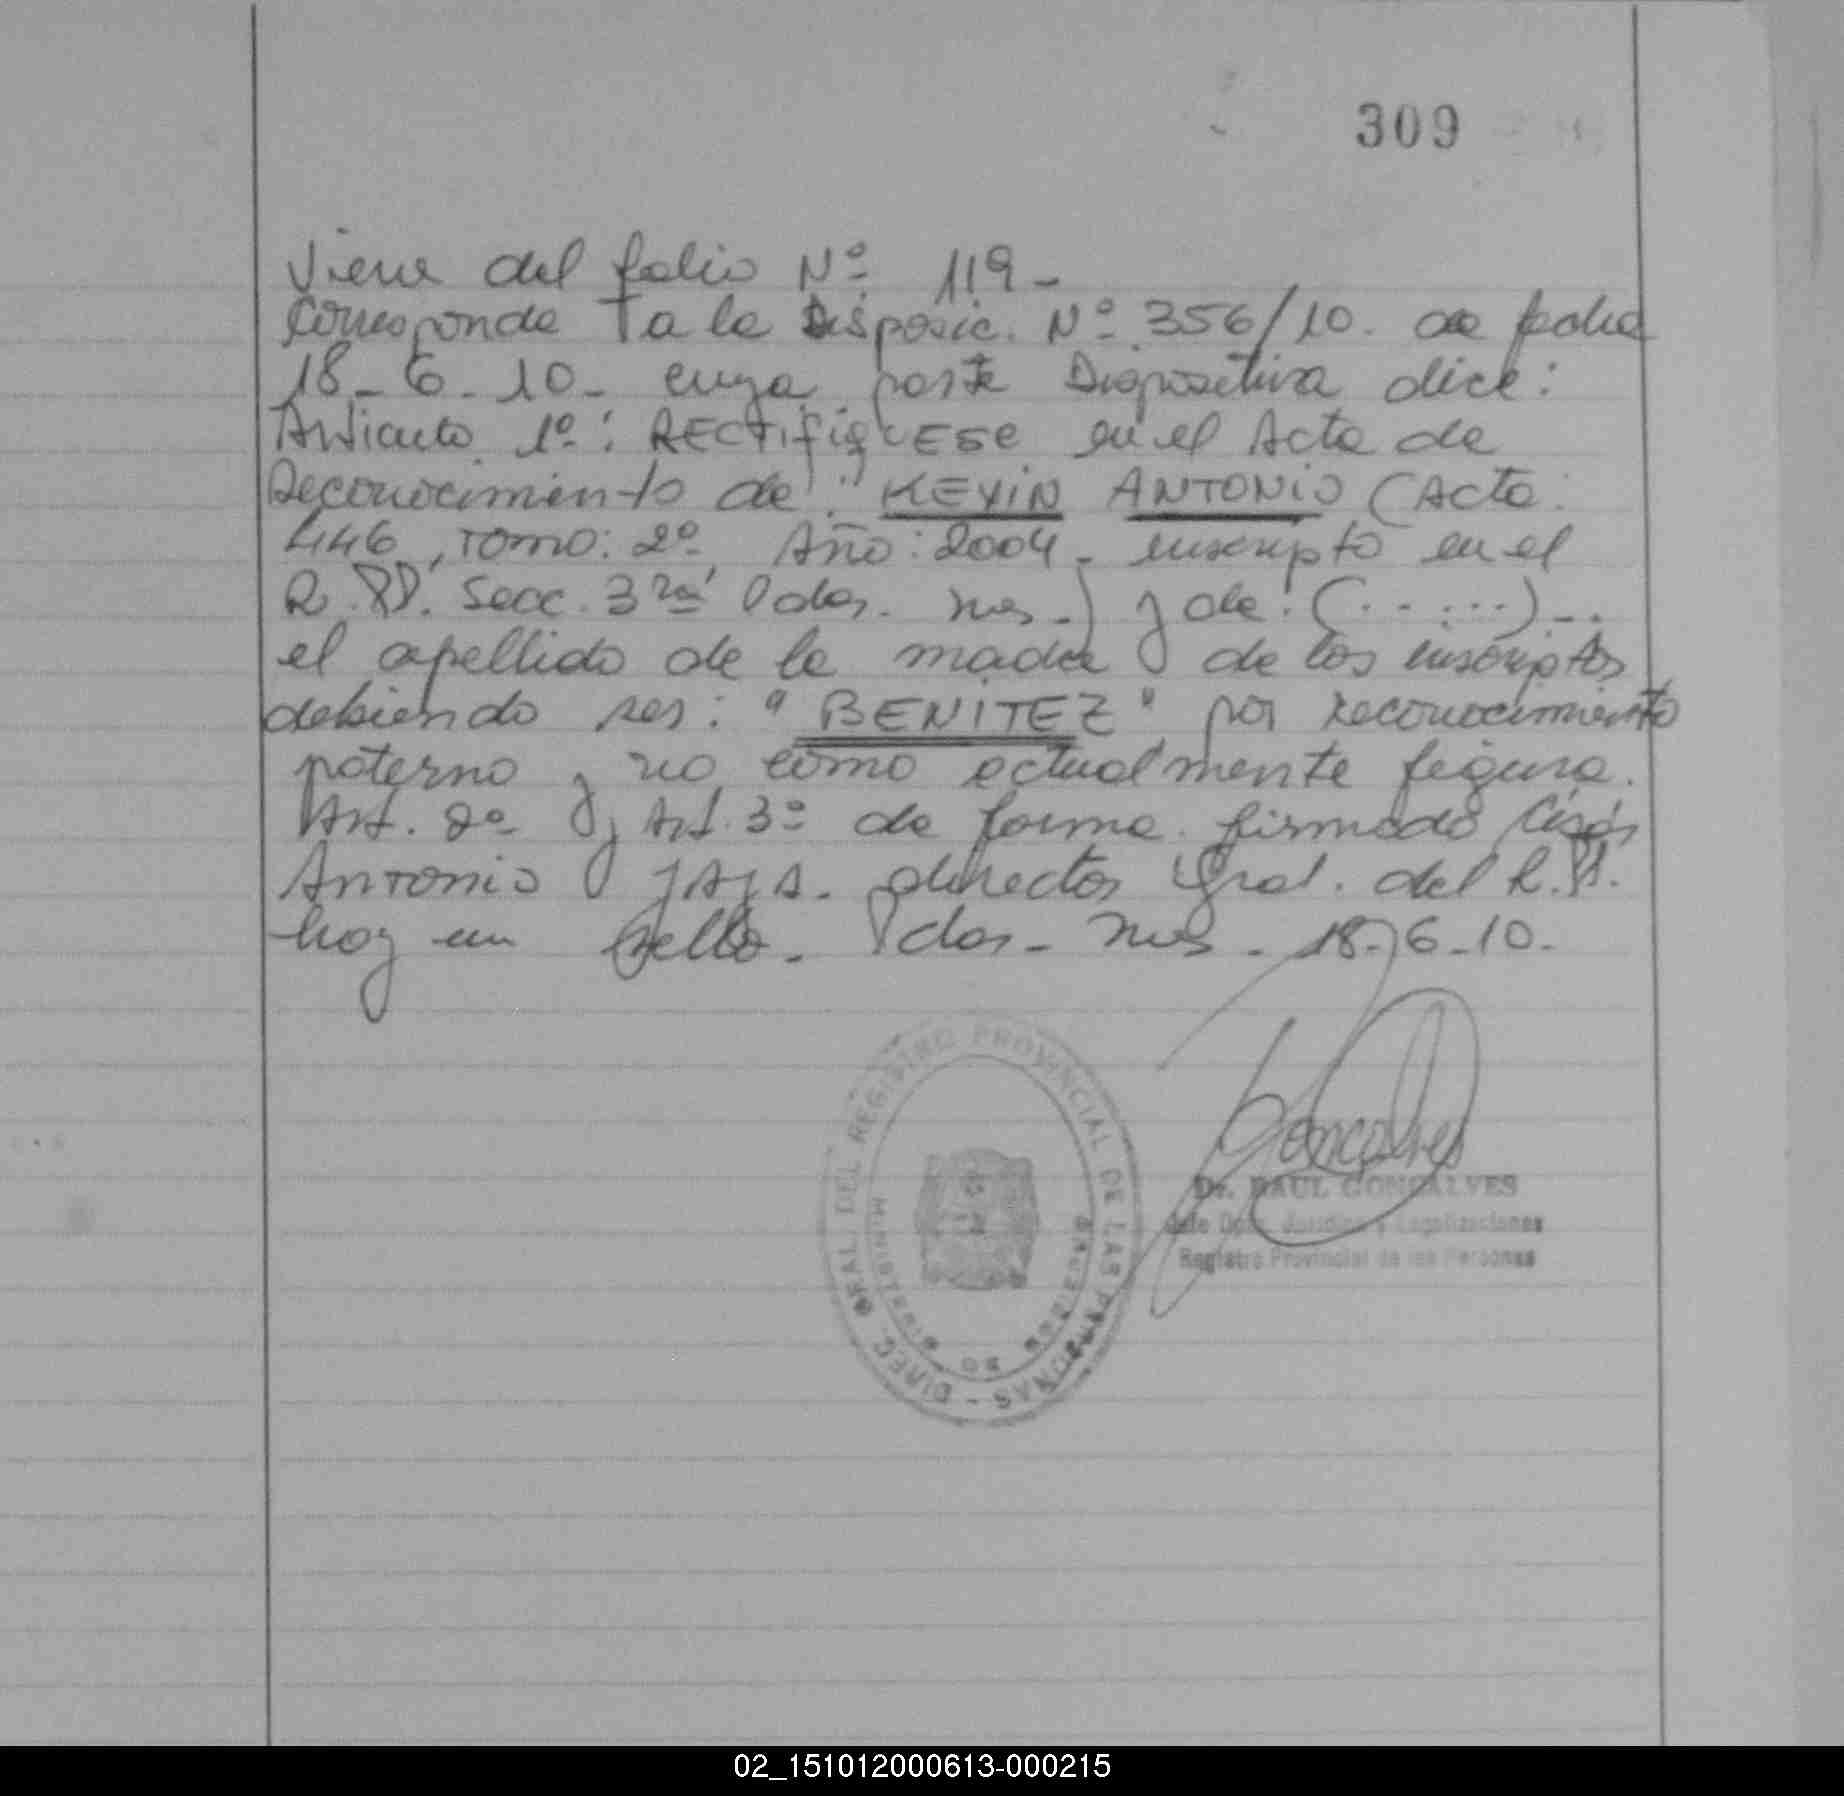 309
Viene del folio Nº 119-
Corresponde a la Disposic. Nº 356/10. de fecha
18-6-10- cuya parte Dispositiva dice:
Articulo 1º: RECTIFIQUESE en el Acta de
Reconocimiento de: "KEVIN ANTONIO (Acta:
446, Tomo: 2º Año: 2004 - inscripto en el
R.PP. Secc. 3ra Pdas. Mnes.) y de: (......)-.
el apellido de la madre de los inscriptos
debiendo ser: "BENITEZ" por reconocimiento
paterno y no como actualmente figura.
Art. 2º y Art. 3º de forma. firmado César
Antonio director Gral. del R.P.
hay un sello. Pdas- Mnes. 18-6-10-
DIREC. GRAL. DEL REGISTRO PROVINCIAL DE LAS PERSONAS -
MINISTERIO DE GOBIERNO
Gonçalves
Dr. RAUL GONSALVES
Jefe Dpto. Jurídico y Legalizaciones
Registro Provincial de las Personas
02_151012000613-000215